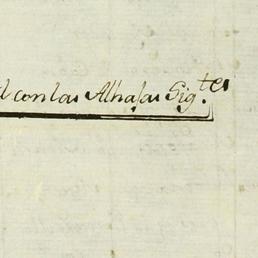 l con las Alhajas Sig.tes